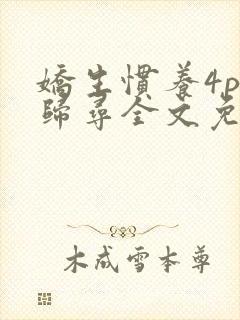 嬌生慣養4p
歸尋全文免
木成雪本尊